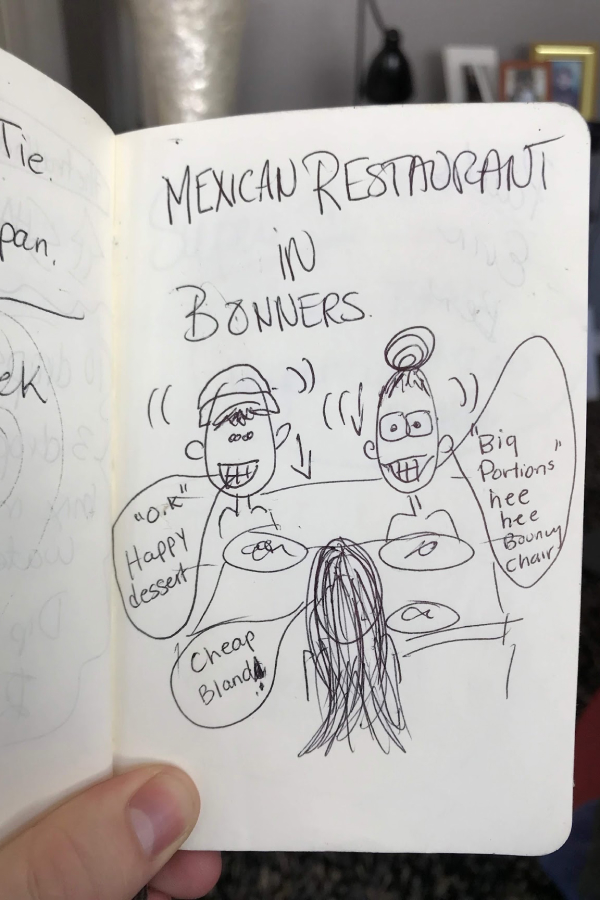 Tie.
pan.
ek
MEXICAN RESTAURANT
IN
BONNERS.
"O.K"
Happy
dessert
"Big
Portions"
hee
hee
Bouncy
chair
Cheap
Bland!